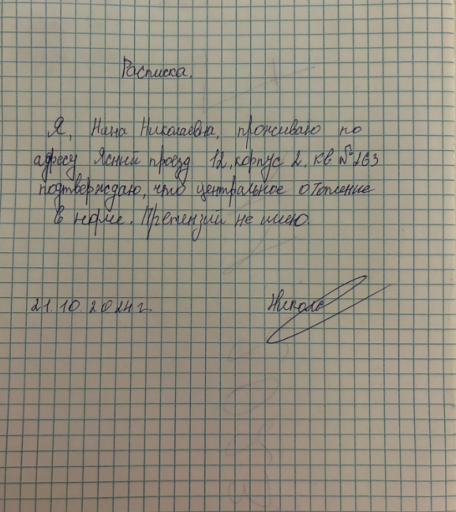 Расписка.
Я, Нина Николаевна, проживаю по
адресу Ясный проезд 12, корпус 2. кв № 263
подтверждаю, что центральное отопление
в норме. Претензий не имею.
21.10.2024г.